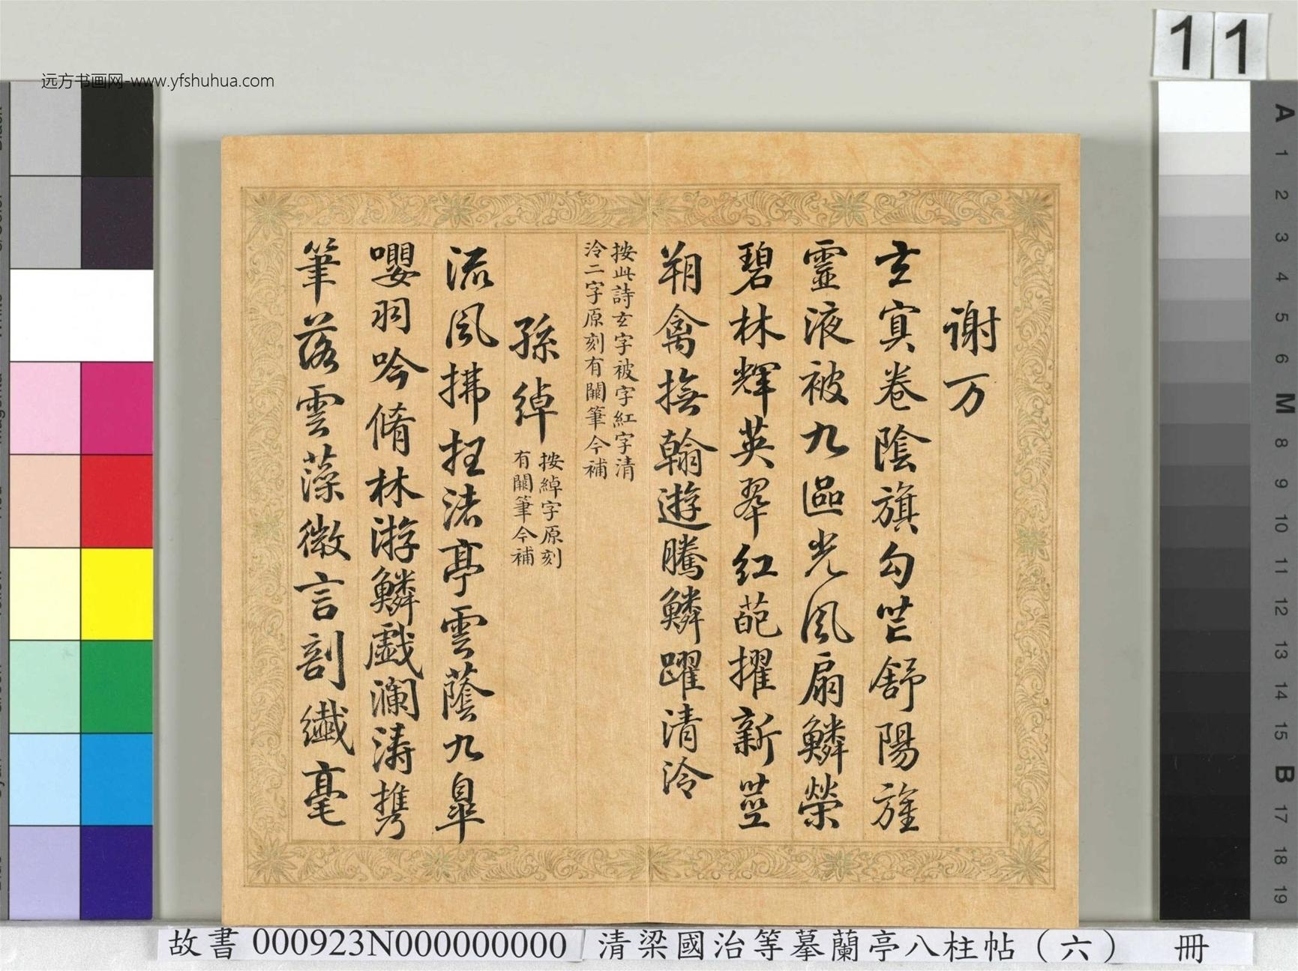 远方书画网-www.yfshuhua.com
11
謝万
玄冥卷陰旗勾芒舒陽旌
靈液被九區光風扇鱗榮
碧林輝英翠紅葩擢新莖
翔禽撫翰遊騰鱗躍清泠
按此詩玄字被字紅字清
泠二字原刻有闕筆今補
孫綽
按綽字原刻
有闕筆今補
流風拂枉渚亭雲蔭九皐
嚶羽吟脩林游鱗戲瀾濤攜
筆落雲藻微言剖纖毫
A
1
2
3
4
5
6
M
8
9
10
11
12
13
14
15
B
17
18
19
故書 000923N000000000 清梁國治等摹蘭亭八柱帖（六） 冊